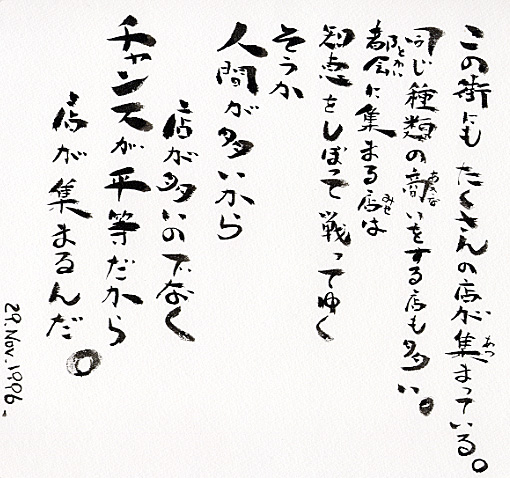 この街にもたくさんの店が集まっている。
同じ種類の商いをする店も多い。
都会に集まる店は
知恵をしぼって戦ってゆく
そうか
人間が多いから
店が多いのでなく
チャンスが平等だから
店が集まるんだ。
29.Nov.1996.